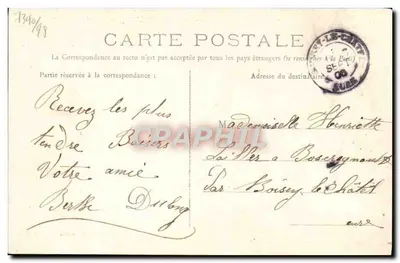 7390/98
CARTE POSTALE
La Correspondance au recto n'est pas acceptée par tous les pays étrangers (se renseigner à la Poste)
Partie réservée à la correspondance :
Adresse du destinataire
EURE
Recevez les plus
tendre Baisers
Votre amie
Berthe Dubuy
CPRPHIL
Mademoiselle Henriette
à Boscregnoult
Par Boissey le Châtel
Eure